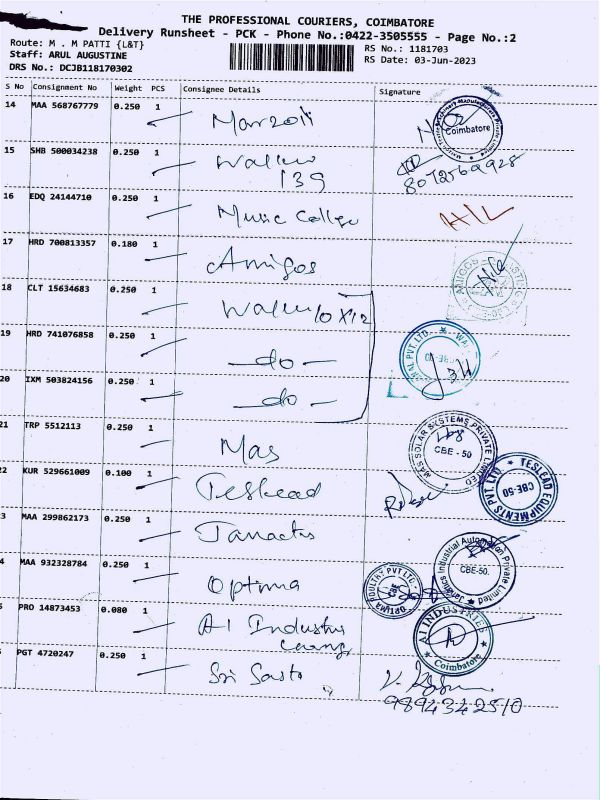 THE PROFESSIONAL COURIERS, COIMBATORE
Delivery Runsheet - PCK - Phone No.:0422-3505555 - Page No.:2
Route: M . M PATTI {L&T}
RS No.: 1181703
Staff: ARUL AUGUSTINE
RS Date: 03-Jun-2023
DRS No.: DCJB118170302
S No Consignment No Weight PCS Consignee Details Signature
14 MAA 568767779 0.250 1
Coimbatore
15 SHB 500034238 0.250 1 Walen
139
8072569928
16 EDQ 24144710 0.250 1 Music College
17 HRD 700813357 0.180 1 Amigos
18 CLT 15634683 0.250 1
19 HRD 741076858 0.250 1 - do -
20 IXM 503824156 0.250 1 - do -
21 TRP 5512113 0.250 1 Mas
MAS SOLAR SYSTEMS PRIVATE LIMITED
CBE - 50
2 KUR 529661009 0.100 1 Teslead
TESLEAD EQUIPMENTS PVT. LTD
CBE-50
3 MAA 299862173 0.250 1
Industrial Automation Private Limited
CBE-50.
4 MAA 932328784 0.250 1 Optima
OPTIMA POULTRY PVT LTD
CBE
PRO 14873453 0.080 1 AI Industries
AI INDUSTRIES
Coimbatore
PGT 4720247 0.250 1 Sri Sasta
9894342510